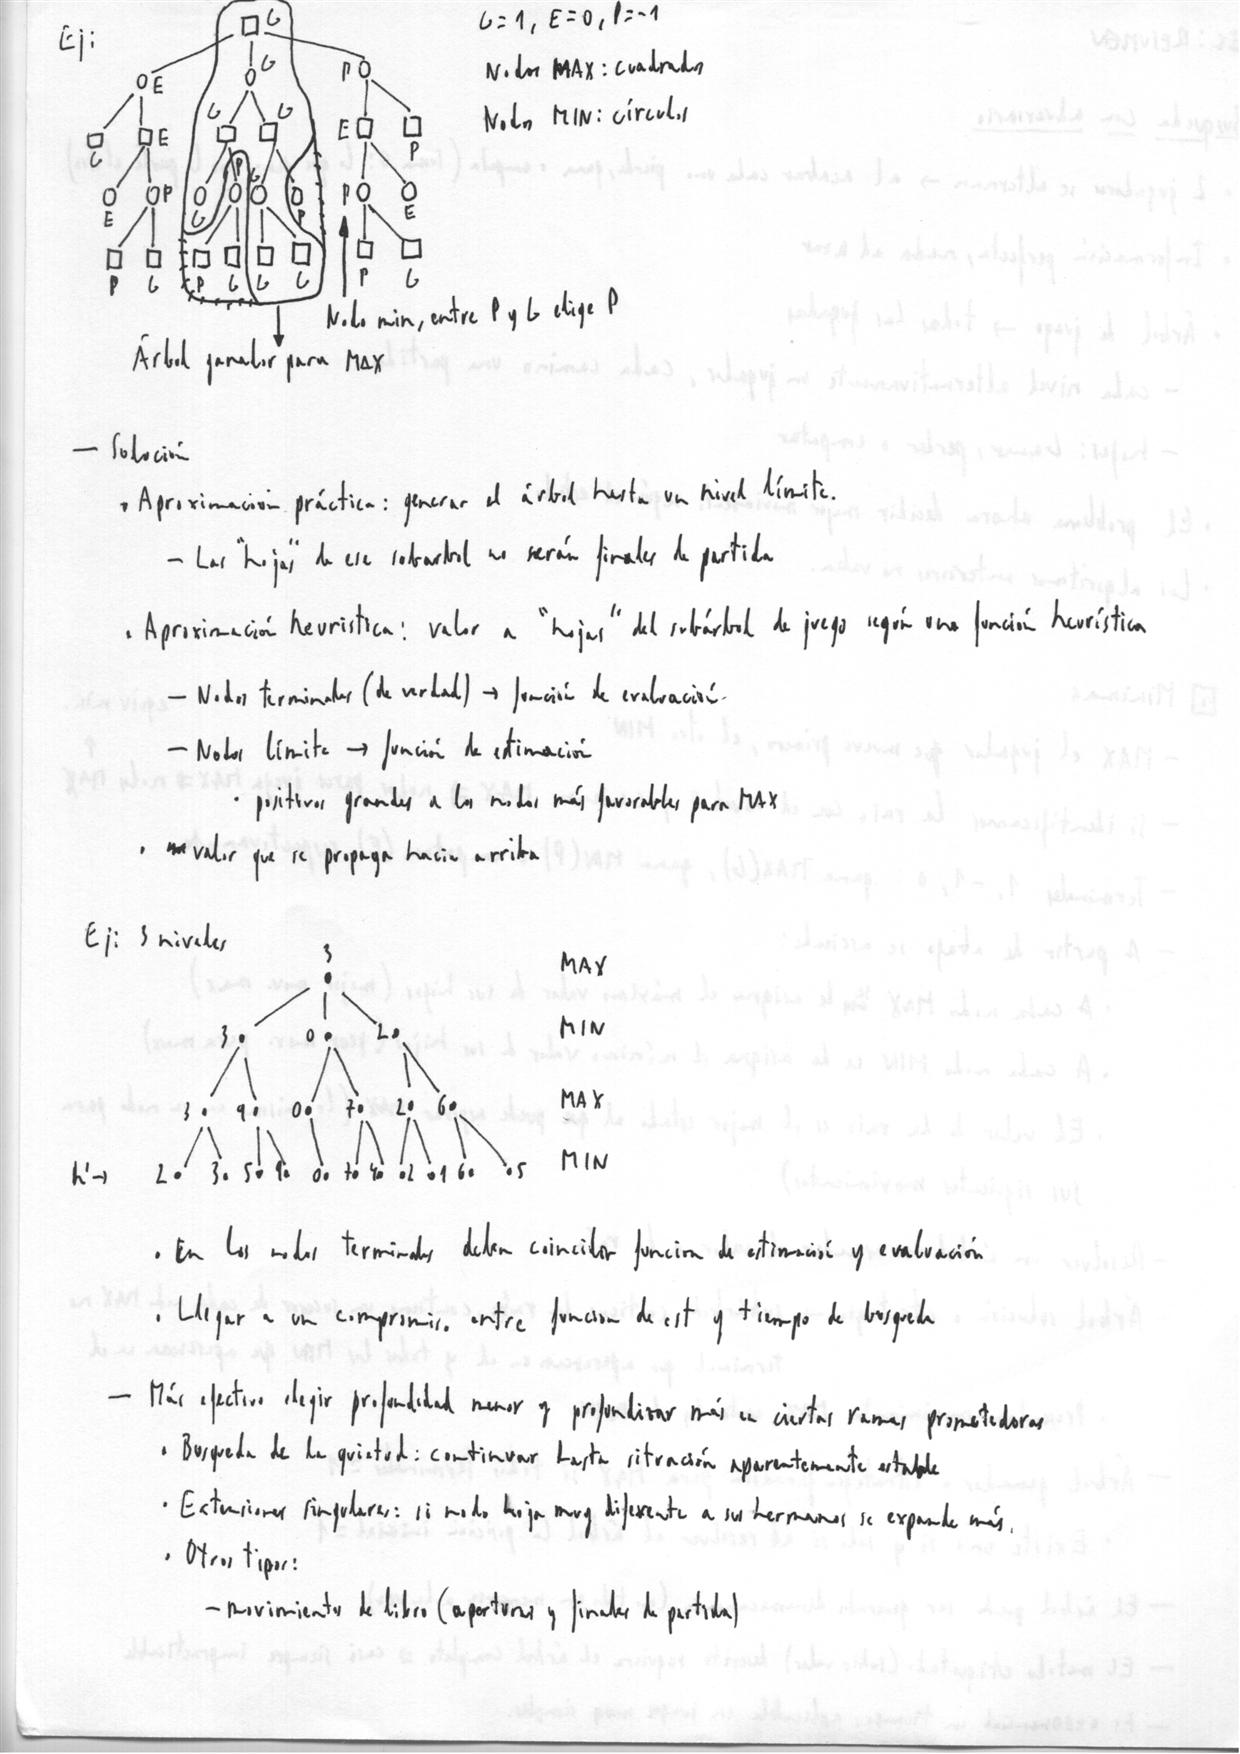 Ej:
G=1, E=0, P=-1
Nodos MAX: cuadrados
Nodos MIN: círculos
G
E G P
G E G G E P
E P G P G P P E
P G P G G G P G
Nodo min, entre P y G elige P
Árbol ganador para MAX
- Solución
· Aproximación práctica: generar el árbol hasta un nivel límite.
- Las "hojas" de ese subarbol no serán finales de partida
· Aproximación heurística: valor a "hojas" del subárbol de juego según una función heurística
- Nodos terminales (de verdad) → función de evaluación.
- Nodos límite → función de estimación
· positivos grandes a los nodos más favorables para MAX
· valor que se propaga hacia arriba
Ej: 3 niveles
3 MAX
3 0 2 MIN
3 9 0 7 2 6 MAX
h'→ 2 3 5 9 0 7 4 2 1 6 5 MIN
· En los nodos terminales deben coincidir funcion de estimación y evaluación
· Llegar a un compromiso entre funcion de est y tiempo de búsqueda
- Más efectivo elegir profundidad menor y profundizar más en ciertas ramas prometedoras
· Búsqueda de la quietud: continuar hasta situación aparentemente estable
· Extensiones singulares: si nodo hoja muy diferente a sus hermanos se expande más.
· Otros tipos:
- movimientos de libro (aperturas y finales de partida)